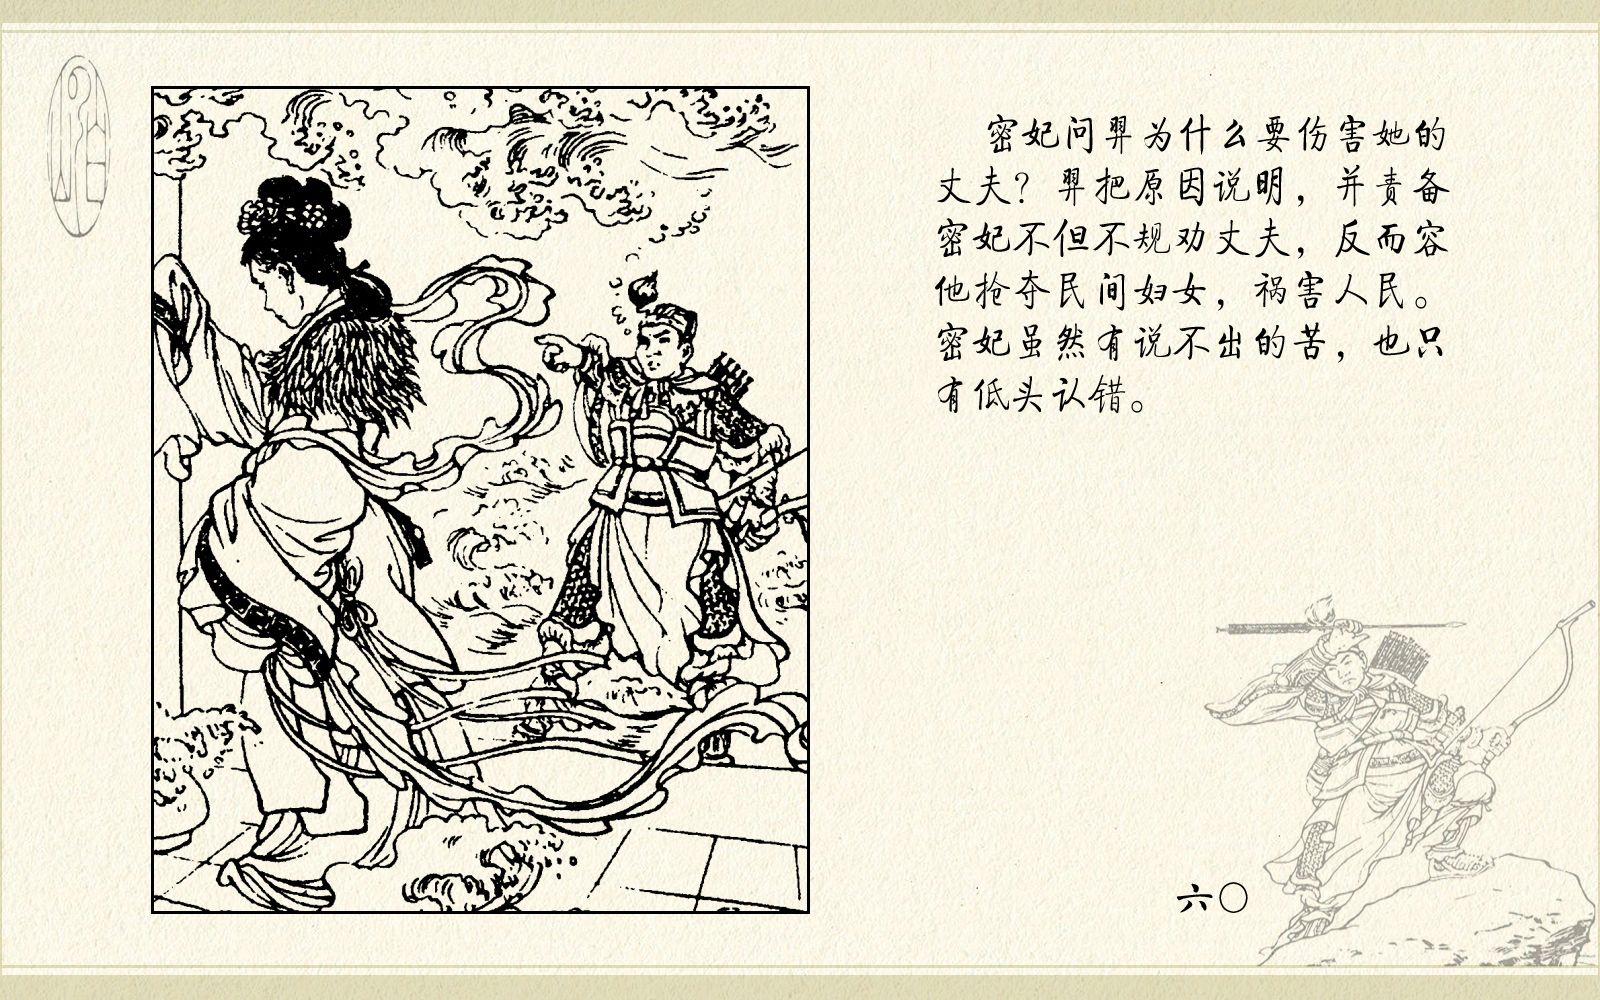 密妃问羿为什么要伤害她的
丈夫？羿把原因说明，并责备
密妃不但不规劝丈夫，反而容
他抢夺民间妇女，祸害人民。
密妃虽然有说不出的苦，也只
有低头认错。
六〇